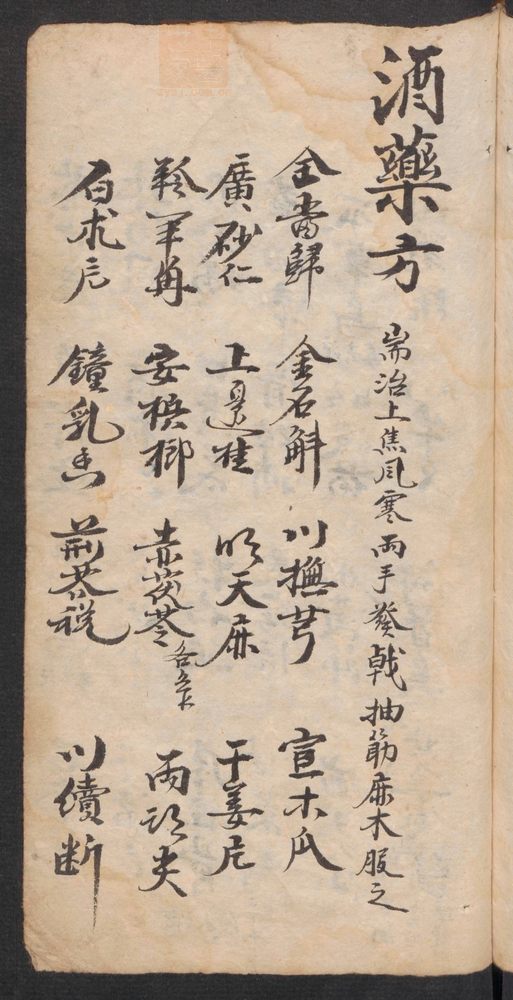 酒藥方
耑治上焦風寒兩手發戟抽筋麻木服之
全當歸 金石斛 川撫芎 宣木瓜
廣砂仁 上邊桂 明天麻 干姜
羚羊角 安檳榔 赤茯苓 各 兩頭尖
白朮 鐘乳 荆芥 川續断